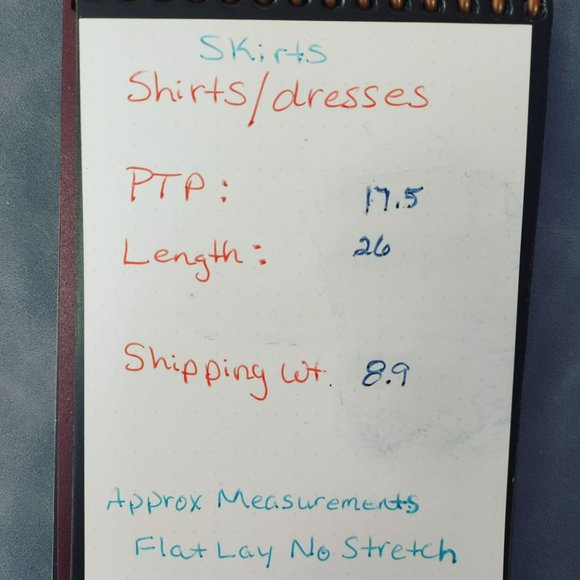 Skirts
Shirts/dresses
PTP: 17.5
Length: 26
Shipping Wt. 8.9
Approx Measurements
Flat Lay No Stretch